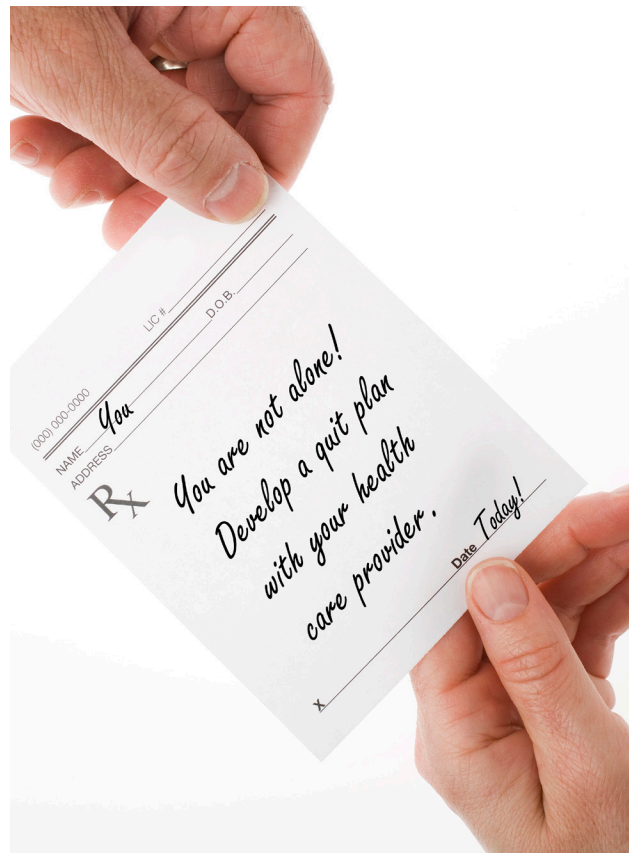 (000) 000-0000 LIC #
NAME You D.O.B.
ADDRESS
Rx
You are not alone!
Develop a quit plan
with your health
care provider.
Date Today!
X